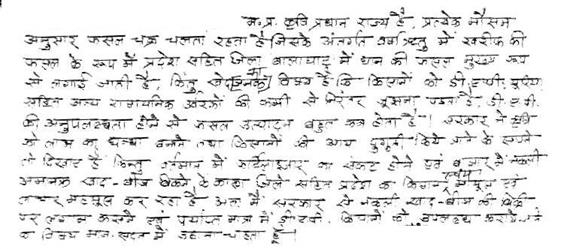 म.प्र. कृषि प्रधान राज्य है, प्रत्येक मौसम
अनुसार फसल चक्र चलता रहता है जिसके अंतर्गत वर्षा ऋतु में खरीफ की
फसल के रूप में प्रदेश सहित जिला बालाघाट में धान की फसल मुख्य रूप
से लगाई जाती है, किन्तु खेद जनक का विषय है कि किसानों को डी.ए.पी. यूरिया
सहित अन्य रासायनिक उर्वरकों की कमी से निरंतर जूझना पड़ता है, डी.ए.पी.
की अनुपलब्धता होने से फसल उत्पादन बहुत कम होता है। सरकार ने कृषि
को लाभ का धन्धा बनाने तथा किसानों की आय दुगुनी किये जाने के सपने
तो दिखाए हैं किन्तु वर्तमान में का संकट होने एवं बाजार में नकली
अमानक खाद-बीज बिकने के कारण जिले सहित प्रदेश का किसान एवं
लाचार महसूस कर रहा है अतः मैं सरकार से नकली खाद-बीज की बिक्री
पर लगाम कसने एवं पर्याप्त मात्रा में डी.ए.पी. किसानों को उपलब्ध कराये जाने
का विषय मान. सदन में उठाना चाहता हूँ।